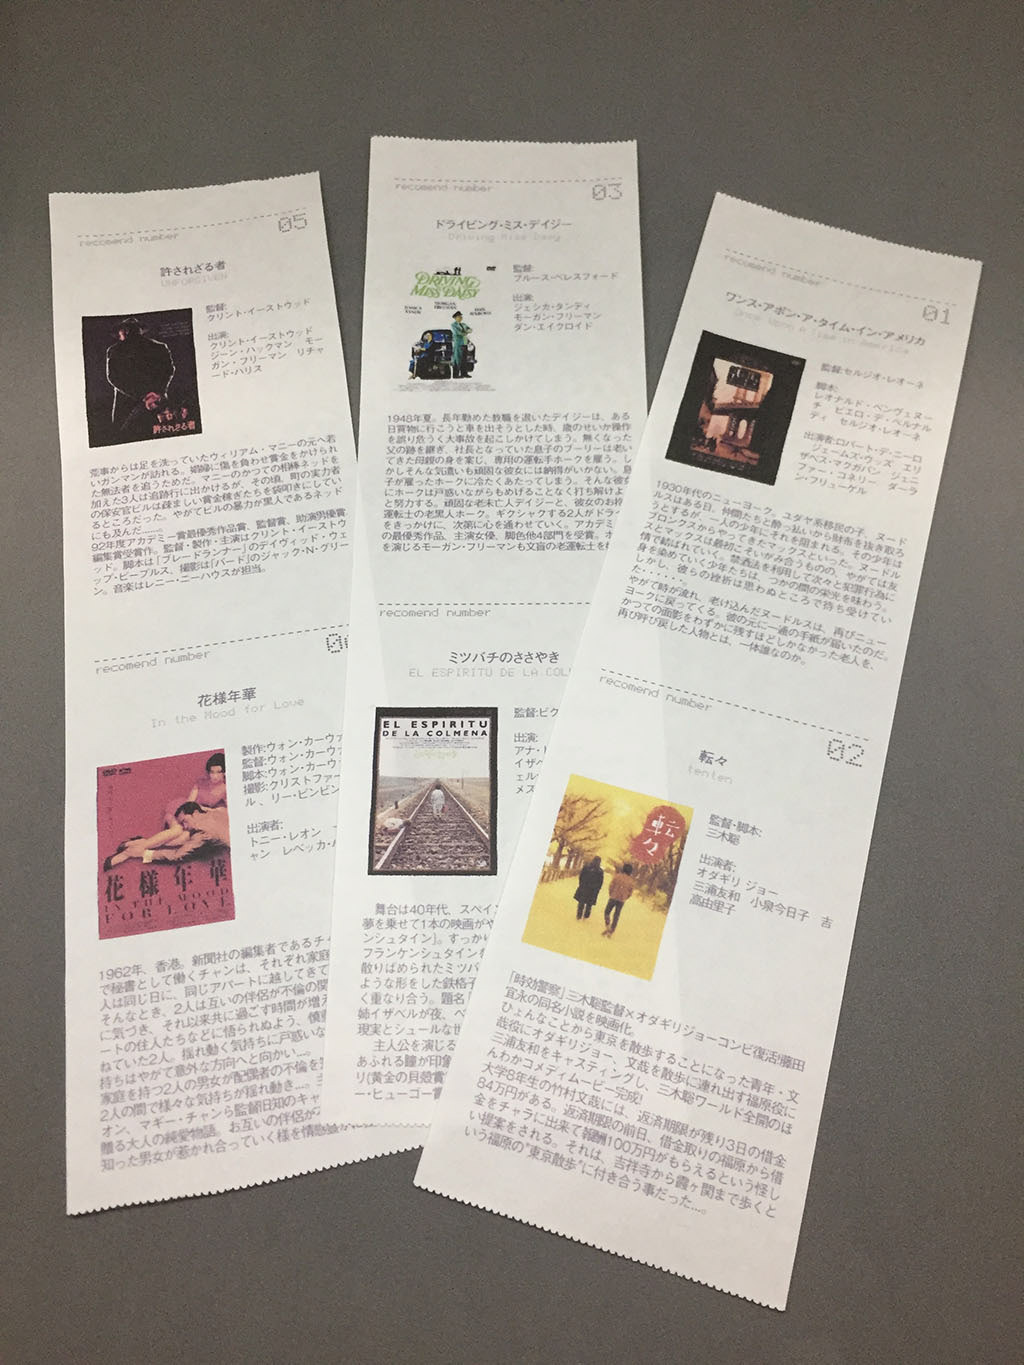 recomend number
05
許されざる者
UNFORGIVEN
監督:
クリント・イーストウッド
出演:
クリント・イーストウッド
ジーン・ハックマン モー
ガン・フリーマン リチャ
ード・ハリス
許されざる者
荒事からは足を洗っていたウィリアム・マニーの元へ若
いガンマンが訪れる。娼婦に傷を負わせ賞金をかけられ
た無法者を追うためだ。マニーのかつての相棒ネッドを
加えた3人は追跡行に出かけるが、その頃、町の実力者
の保安官ビルは疎ましい賞金稼ぎたちを袋叩きにしてい
るところだった。やがてビルの暴力が黒人であるネッド
にも及んだ……。
92年度アカデミー賞最優秀作品賞、監督賞、助演男優賞
編集賞受賞作。監督・製作・主演はクリント・イーストウ
ッド。脚本は「ブレードランナー」のデイヴィッド・ウェ
ッブ・ピープルス、撮影は「バード」のジャック・N・グリー
ン。音楽はレニー・ニーハウスが担当。
recomend number
花様年華
In the Mood for Love
製作:ウォン・カーウァ
監督:ウォン・カーウァ
脚本:ウォン・カーウァ
撮影:クリストファー
ル 、リー・ピンビン
出演者:
トニー・レオン
ャン レベッカ・
花様年華
IN THE MOOD
FOR LOVE
1962年、香港。新聞社の編集者であるチャ
で秘書として働くチャンは、それぞれ家庭
人は同じ日に、同じアパートに越してきて
そんなとき、2人は互いの伴侶が不倫の関
に気づき、それ以来共に過ごす時間が増え
ートの住人たちなどに悟られぬよう、慎
ねていた2人。揺れ動く気持ちに戸惑いな
持ちはやがて意外な方向へと向かい…。
家庭を持つ2人の男女が配偶者の不倫を
2人の間で様々な気持ちが揺れ動き…。
オン、マギー・チャンら監督旧知のキャ
贈る大人の純愛物語。お互いの伴侶が
知った男女が惹かれ合っていく様を情感
recomend number
03
ドライビング・ミス・デイジー
Driving Miss Daisy
監督:
ブルース・ベレスフォード
出演:
ジェシカ・タンディ
モーガン・フリーマン
ダン・エイクロイド
DRIVING
MISS DAISY
1948年夏。長年勤めた教職を退いたデイジーは、ある
日買物に行こうと車を出そうとした時、歳のせいか操作
を誤り危うく大事故を起こしかけてしまう。無くなった
父の跡を継ぎ、社長となっていた息子のブーリーは老い
てきた母親の身を案じ、専用の運転手ホークを雇う。し
かしそんな気遣いも頑固な彼女には納得がいかない。息
子が雇ったホークに冷たくあたってしまう。そんな彼女
にホークは戸惑いながらもめげることなく打ち解けよ
と努力する。頑固な老未亡人デイジーと、彼女のお抱
運転士の老黒人ホーク。ギクシャクする2人がドラ
をきっかけに、次第に心を通わせていく。アカデミ
の最優秀作品、主演女優、脚色他4部門を受賞。ホ
を演じるモーガン・フリーマンも文盲の老運転士を
recomend number
ミツバチのささやき
EL ESPIRITU DE LA COL
監督:ビク
出演:
アナ・
イザベ
ェル
メス
EL ESPIRITU
DE LA COLMENA
舞台は40年代、スペイン
夢を乗せて1本の映画がや
ンシュタイン]。すっかり
フランケンシュタインを
散りばめられたミツバ
ような形をした鉄格子
く重なり合う。題名「
姉イザベルが夜、ベ
現実とシュールな世
主人公を演じる
あふれる瞳が印象
リ(黄金の貝殻賞
ー・ヒューゴー賞
recomend number
01
ワンス・アポン・ア・タイム・イン・アメリカ
Once Upon a Time in America
監督:セルジオ・レオーネ
脚本:
レオナルド・ベンヴェヌー
チ ピエロ・デ・ベルナル
ディ セルジオ・レオーネ
出演者:ロバート・デ・ニーロ
ジェームズ・ウッズ エリ
ザベス・マクガバン ジェニ
ファー・コネリー ダーラ
ン・フリューゲル
1930年代のニューヨーク。ユダヤ系移民の子、ヌード
ルスはある日、仲間たちと酔っ払いから財布を抜き取ろ
うとするが、一人の少年にそれを阻まれる。その少年は
ブロンクスからやってきたマックスといった。ヌードル
スとマックスは最初こそいがみ合うものの、やがては友
情で結ばれていく。禁酒法を利用して次々と犯罪行為に
身を染めていく少年たちは、つかの間の栄光を味わう。
しかし、彼らの挫折は思わぬところで待ち受けてい
た・・・・・・。
やがて時が流れ、老け込んだヌードルスは、再びニュー
ヨークに戻ってくる。彼の元に一通の手紙が届いたのだ。
かつての面影をわずかに残すほどしかなかった老人を、
再び呼び戻した人物とは、一体誰なのか。
recomend number
02
転々
tenten
監督・脚本:
三木聡
出演者:
オダギリ ジョー
三浦友和 小泉今日子 吉
高由里子
転々
「時効警察」三木聡監督×オダギリジョーコンビ復活!藤田
宜永の同名小説を映画化。
ひょんなことから東京を散歩することになった青年・文
哉役にオダギリジョー、文哉を散歩に連れ出す福原役に
三浦友和をキャスティングし、三木聡ワールド全開のほ
んわかコメディムービー完成!
大学8年生の竹村文哉には、返済期限が残り3日の借金
84万円がある。返済期限の前日、借金取りの福原から借
金をチャラに出来て報酬100万円がもらえるという怪し
い提案をされる。それは、吉祥寺から霞ヶ関まで歩くと
いう福原の“東京散歩”に付き合う事だった…。